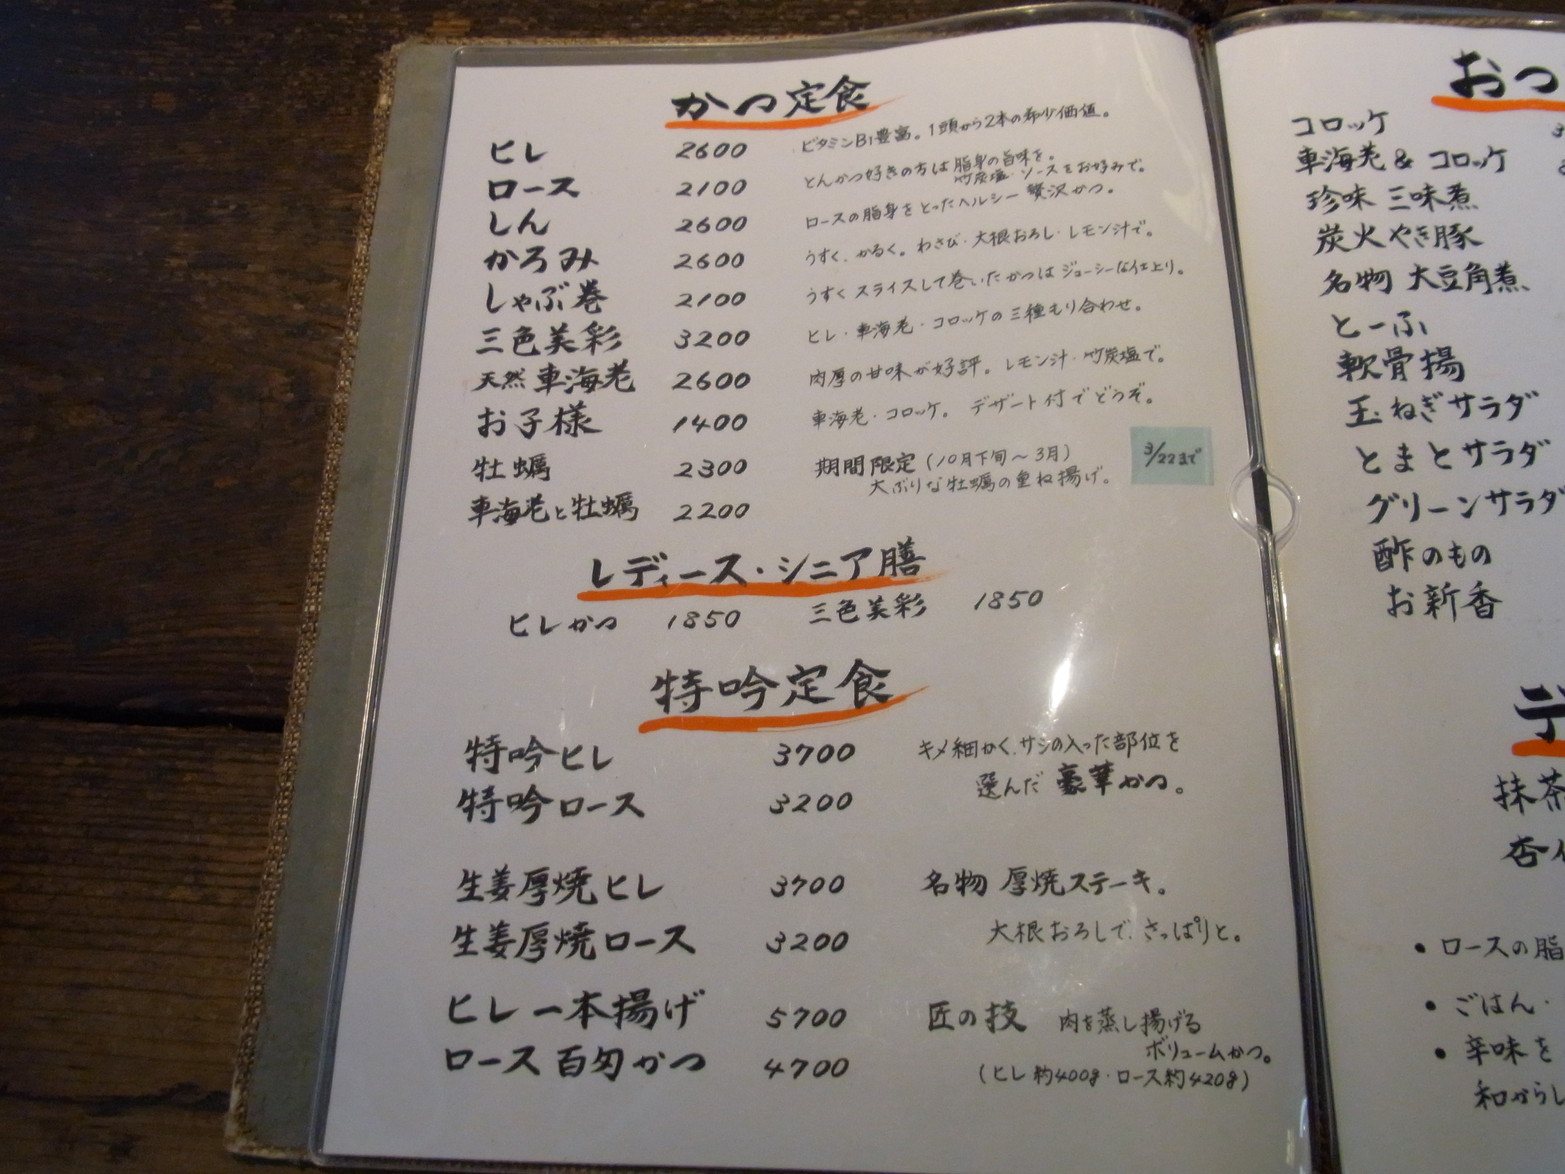 かつ定食
ヒレ 2600 ビタミンB1豊富。1頭から2本の希少価値。
ロース 2100 とんかつ好きの方は脂身の旨味を。
竹炭塩・ソースをお好みで。
しん 2600 ロースの脂身をとったヘルシー贅沢かつ。
かろみ 2600 うすく、かるく。わさび・大根おろし・レモン汁で。
しゃぶ巻 2100 うすくスライスして巻いたかつはジューシーな仕上り。
三色美彩 3200 ヒレ・車海老・コロッケの三種もり合わせ。
天然車海老 2600 肉厚の甘味が好評。レモン汁・竹炭塩で。
お子様 1400 車海老・コロッケ。デザート付でどうぞ。
牡蠣 2300 期間限定(10月下旬〜3月) 3/22まで
大ぶりな牡蠣の重ね揚げ。
車海老と牡蠣 2200
レディース・シニア膳
ヒレかつ 1850 三色美彩 1850
特吟定食
特吟ヒレ 3700 キメ細かく、サシの入った部位を
選んだ 豪華かつ。
特吟ロース 3200
生姜厚焼ヒレ 3700 名物 厚焼ステーキ。
生姜厚焼ロース 3200 大根おろしで、さっぱりと。
ヒレ一本揚げ 5700 匠の技 肉を蒸し揚げる
ボリュームかつ。
ロース百匁かつ 4700 (ヒレ約400g・ロース約420g)
おつ
コロッケ
車海老 & コロッケ
珍味 三味煮
炭火やき豚
名物 大豆角煮
とーふ
軟骨揚
玉ねぎサラダ
とまとサラダ
グリーンサラダ
酢のもの
お新香
デ
抹茶
杏
• ロースの脂
• ごはん・
• 辛味を
和からし